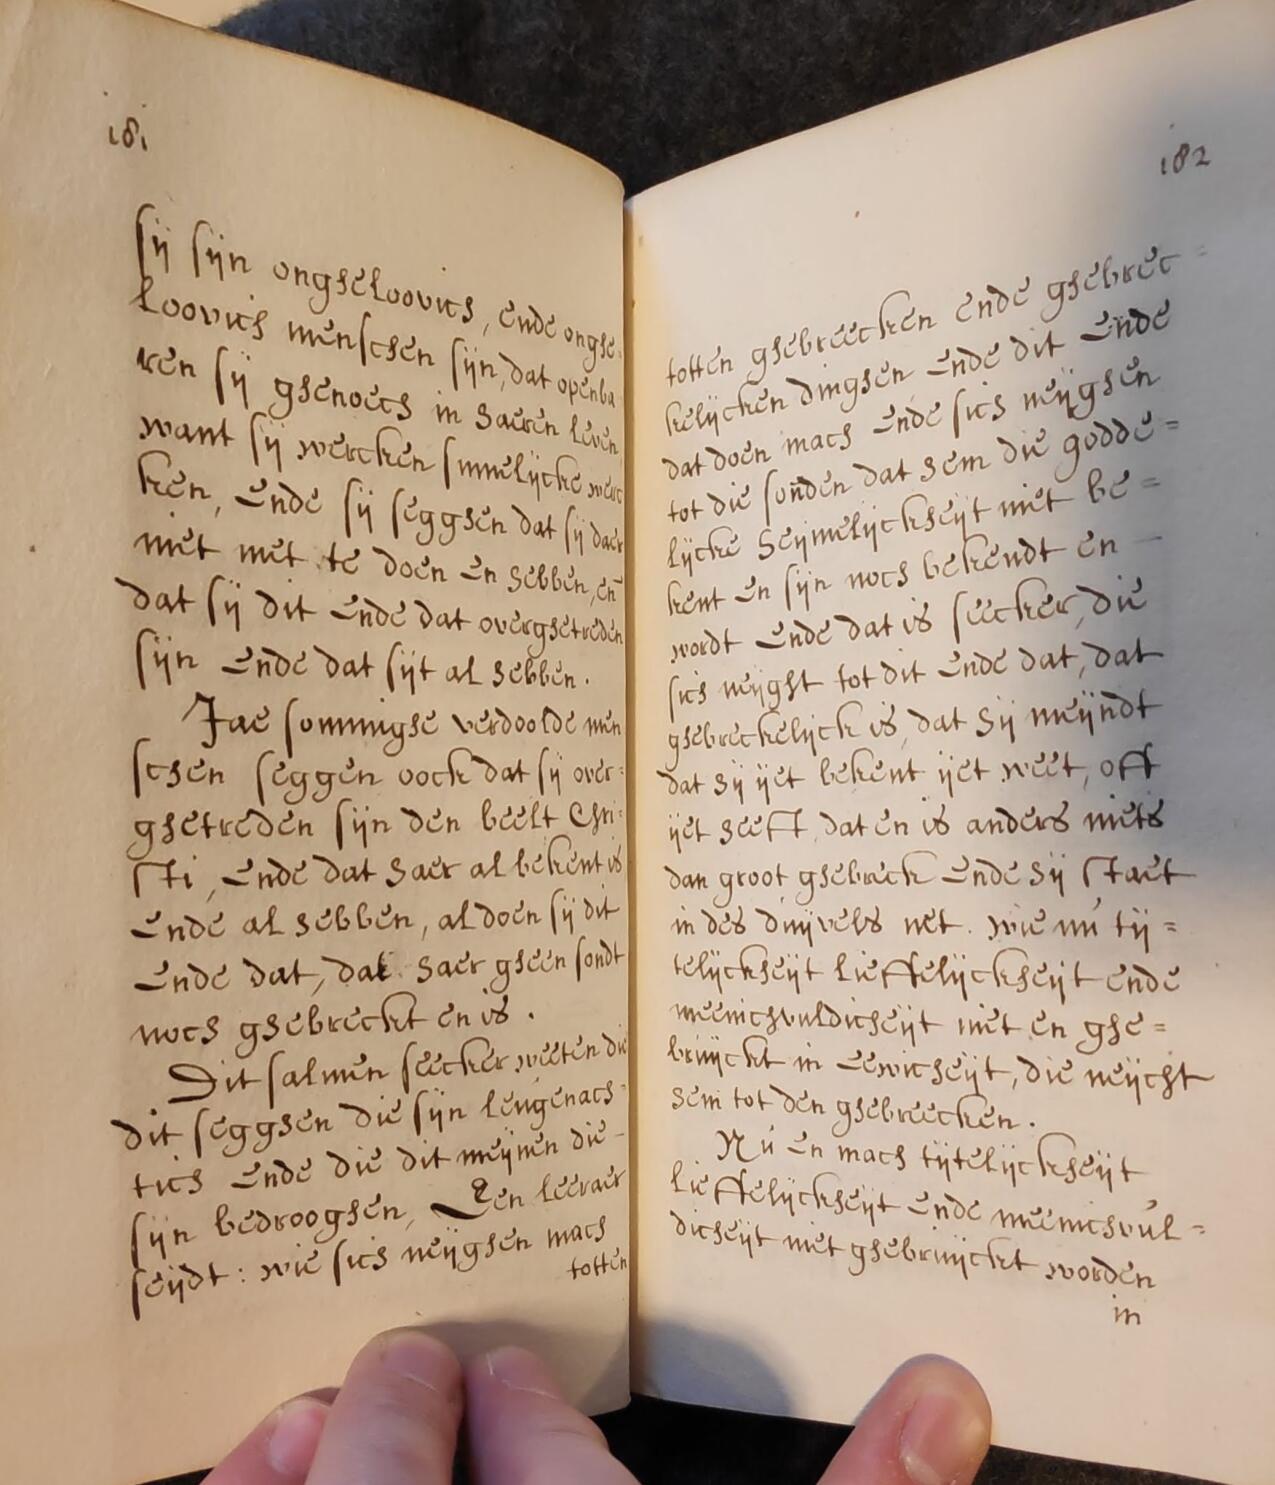 181
sij sijn ongheloovich, ende onghe=
loovich menschen sijn, dat openba
ren sij ghenoech in haeren leven
want sij wercken sinnelijcke werc
ken, ende sij segghen dat sij daer
niet met te doen en hebben, en
dat sij dit ende dat overghetreden
sijn ende dat sijt al hebben.
Jae sommighe verdoolde men
schen seggen oock dat sij over=
ghetreden sijn den beelt Chri=
sti, ende dat haer al bekent is
ende al hebben, al doen sij dit
ende dat, dat haer gheen sondt
noch ghebreckt en is.
Dit salmen seecker weeten die
dit segghen die sijn leugenach=
tich ende die dit meijnen die -
sijn bedrooghen, Een leeraer
seijdt: wie sich neijghen mach
totten
182
totten ghebreecken ende ghebrec =
kelijcken dinghen ende dit ende
dat doen mach ende sich neijghen
tot die sonden dat hem die godde =
lijcke heijmelijckheijt niet be =
kent en sijn noch bekendt en -
wordt ende dat is seecker, die
sich neijght tot dit ende dat, dat
ghebreckelijck is, dat hij meijndt
dat hij ijet bekent ijet weet, oft
ijet heeft, dat en is anders niets
dan groot ghebreck ende hij staet
in des duijvels net. wie nu tij =
telijckheijt lieffelijckheijt ende
meenichvuldicheijt niet en ghe =
bruijckt in eewicheijt, die neijcht
hem tot den ghebreecken.
Nu en mach tijtelijckheijt
lieffelijckheijt ende meenichvul =
dicheijt niet ghebruijckt worden
in